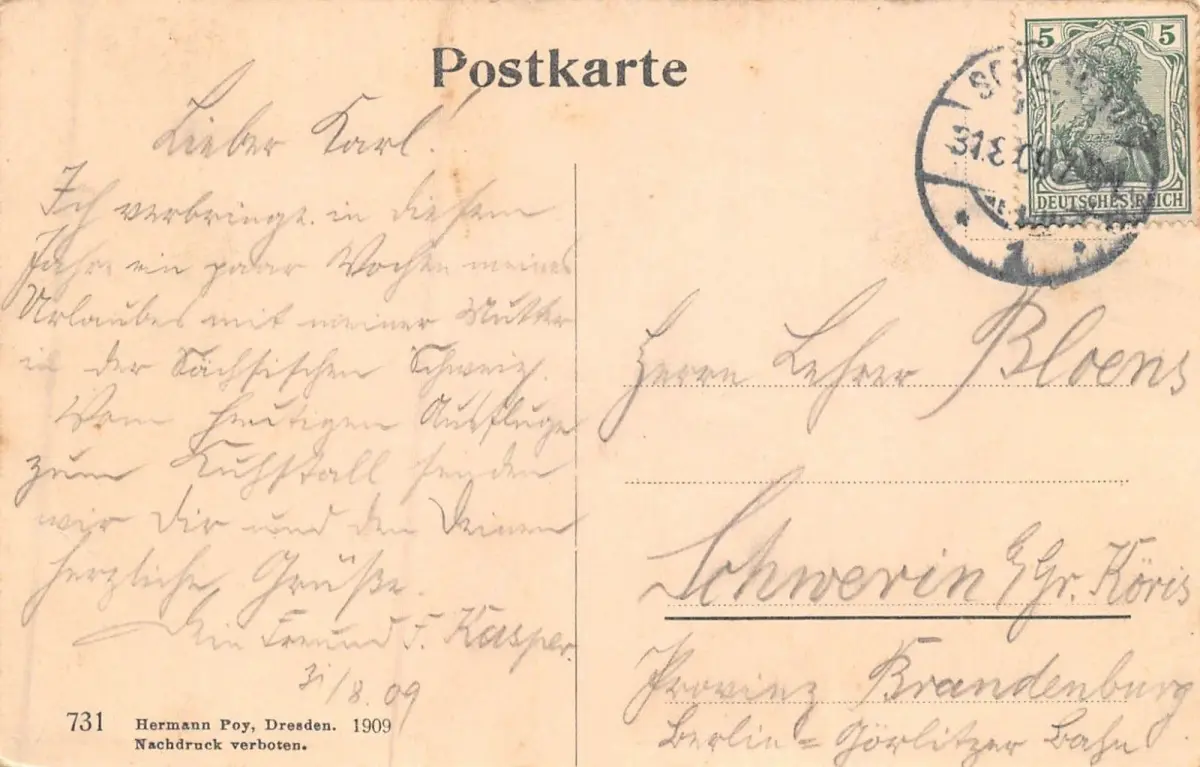 Postkarte
Lieber Karl!
Ich verbringe in diesem
Jahre ein paar Wochen meines
Urlaubes mit meiner Mutter
in der Sächsischen Schweiz.
Vom heutigen Ausfluge
zum Kuhstall senden
wir Dir und den Deinen
herzliche Grüße.
Dein Freund F. Kasper.
31/8.09
731 Hermann Poy, Dresden. 1909
Nachdruck verboten.
5 5
DEUTSCHES REICH
31.8.09
1
Herrn Lehrer Bloens
Schwerin b/Gr. Köris
Provinz Brandenburg
Berlin=Görlitzer Bahn